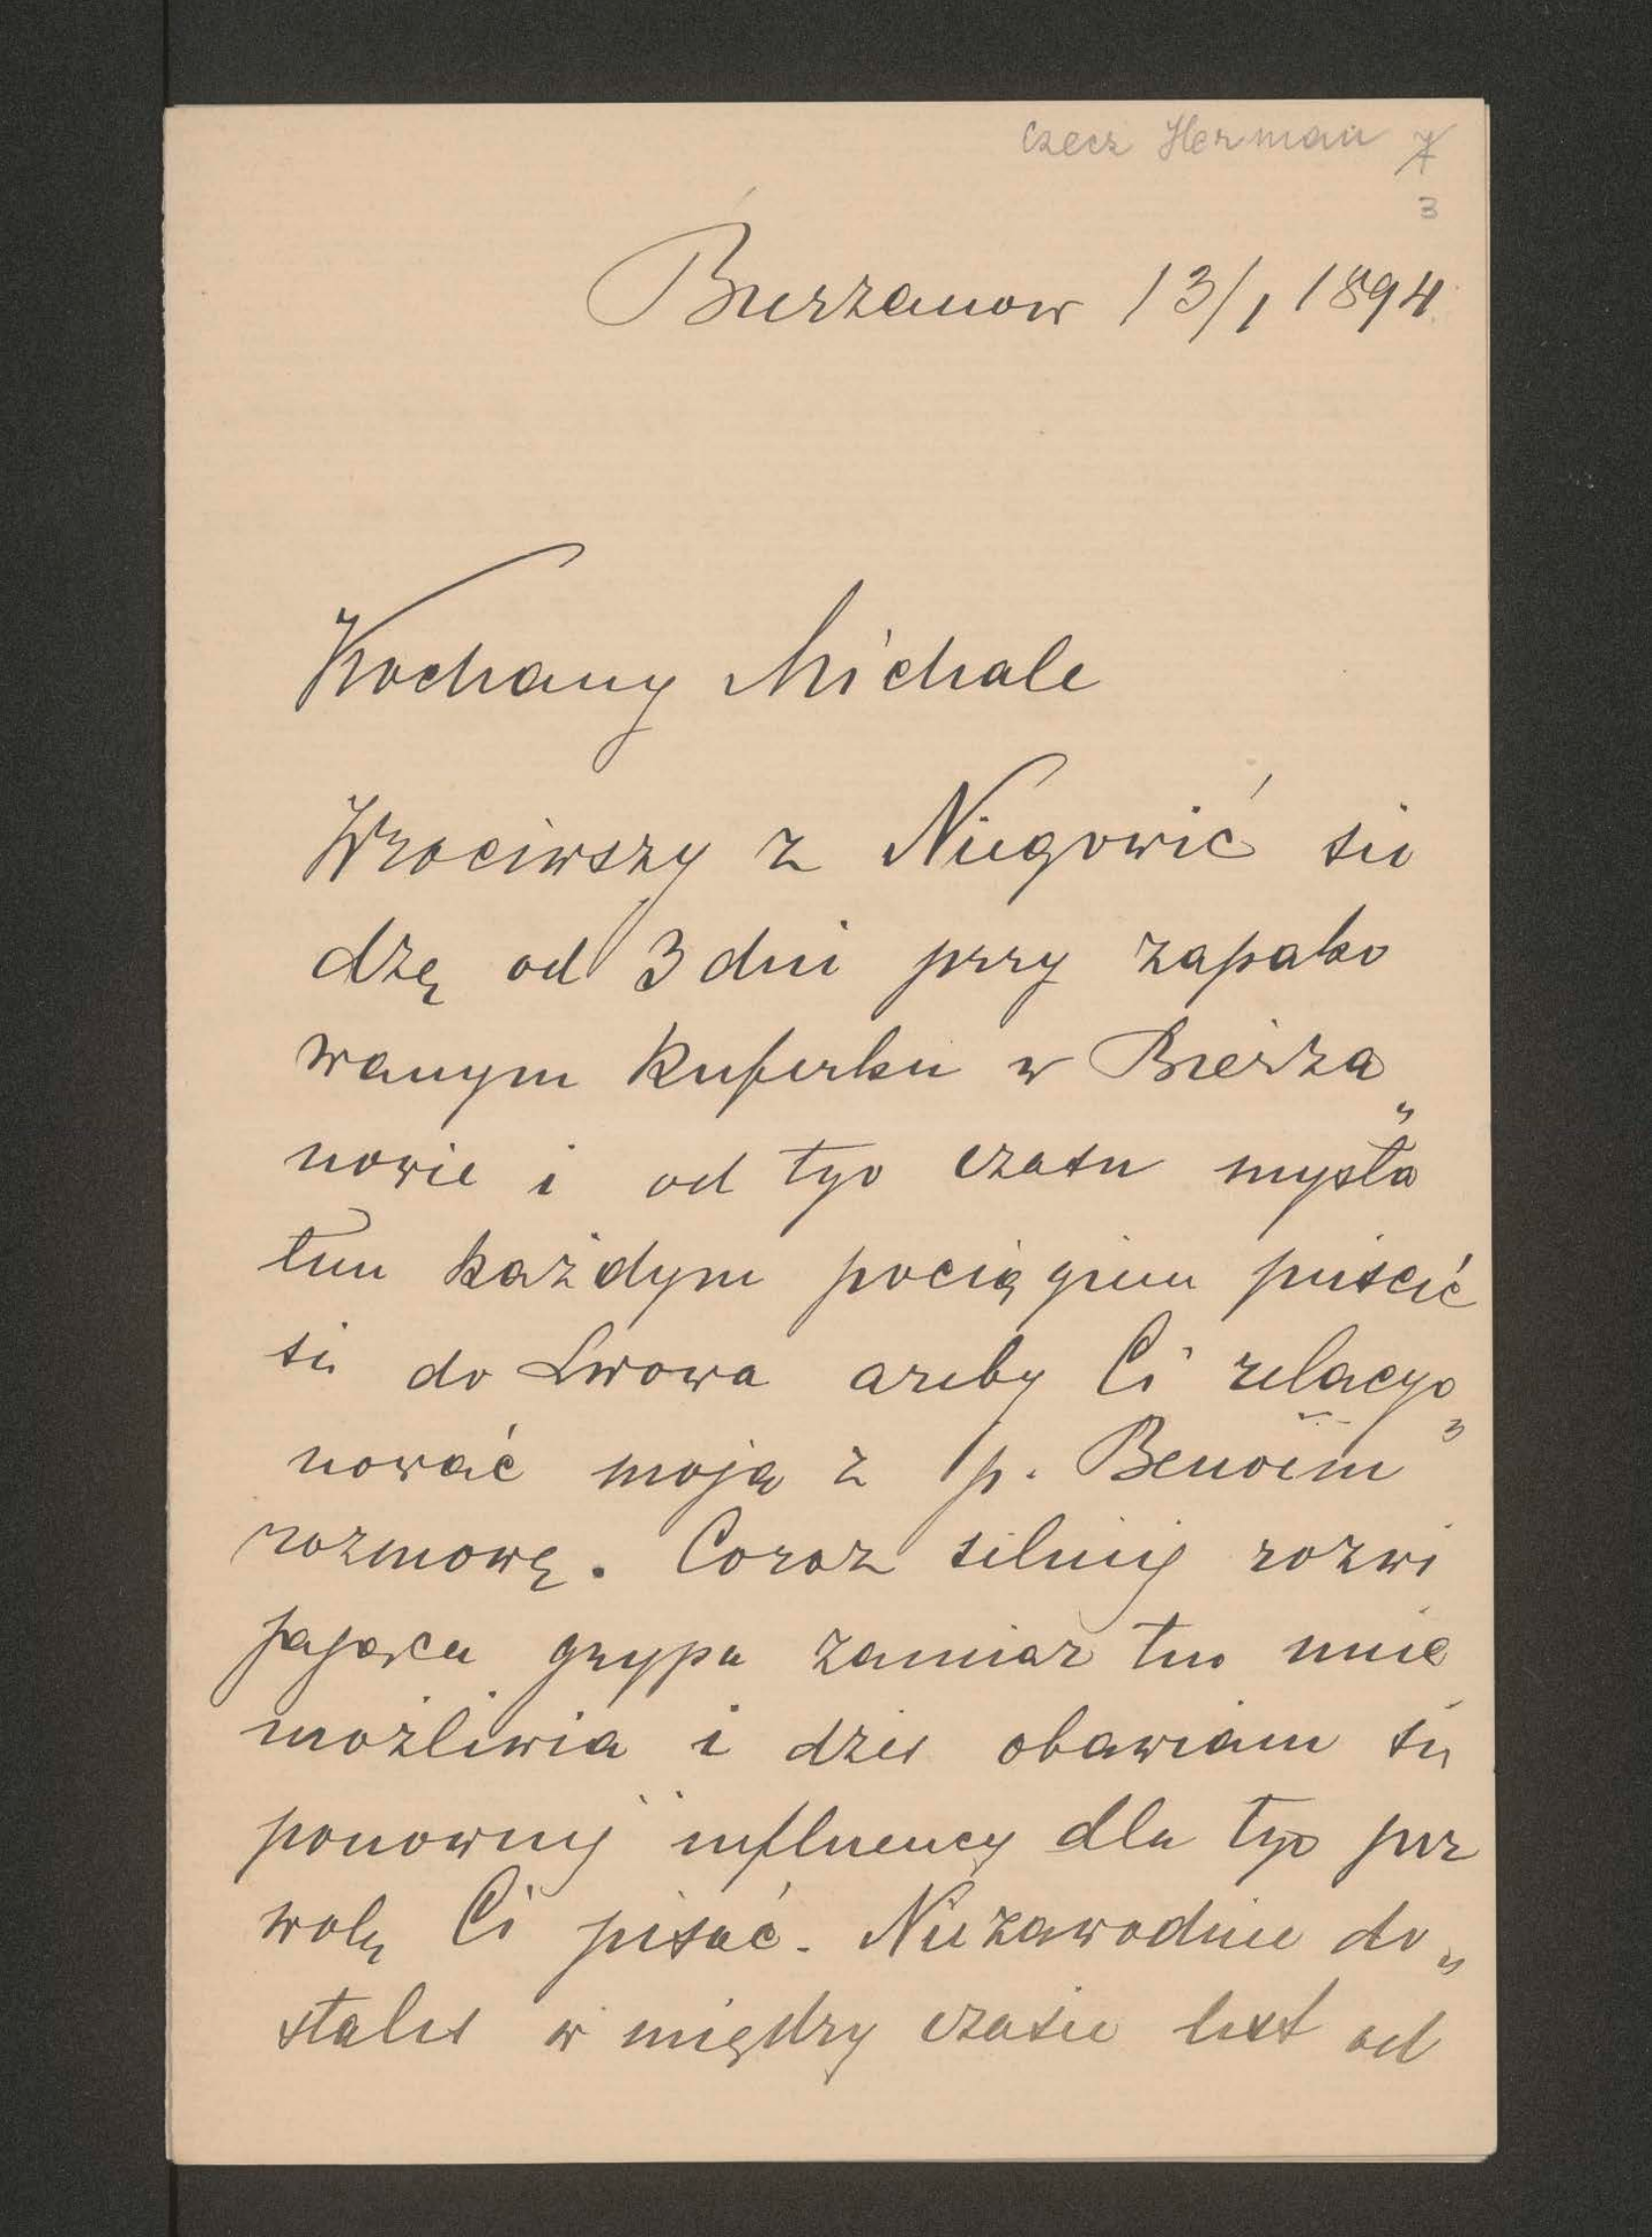 Czecz Herman 7
3
Bierzanow 13/1 1894.
Kochany Michale
Wrociwszy z Niegowić sie
dzę od 3 dni przy zapako
wanym kuferku w Bieżza„
nowie i od tego czasu mysła
łem każdym pociągiem puscić
się do Lwowa azeby Ci relacyo„
nować moją z p. Benoëm
rozmowę. Coraz silniej rozwi
jająca grypa zamiar ten unie
możliwia i dzis obawiam się
ponownej influency dla tego poz
wolę Ci pisać. Niezawodnie do„
stałes w między czasie list od